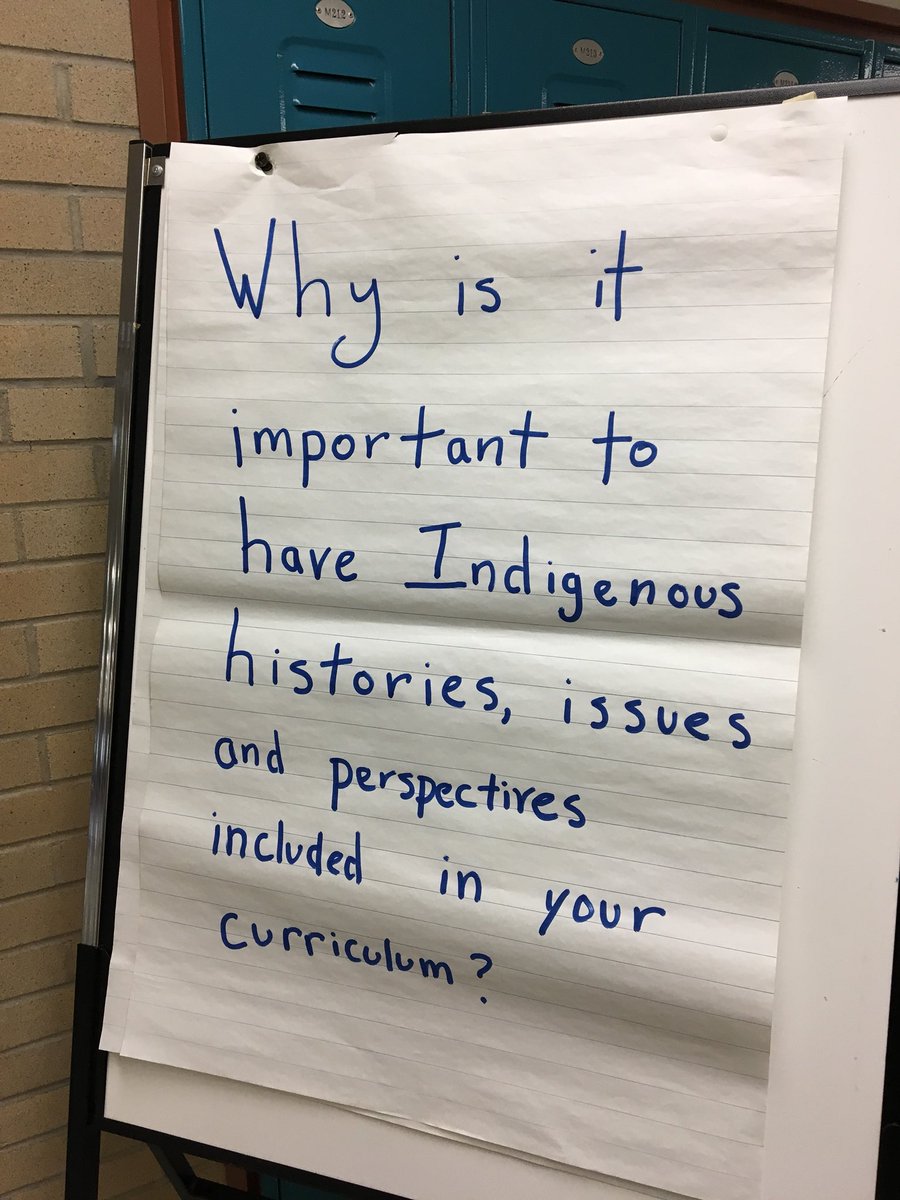 M212
M213
Why is it
important to
have Indigenous
histories, issues
and perspectives
included in your
curriculum?